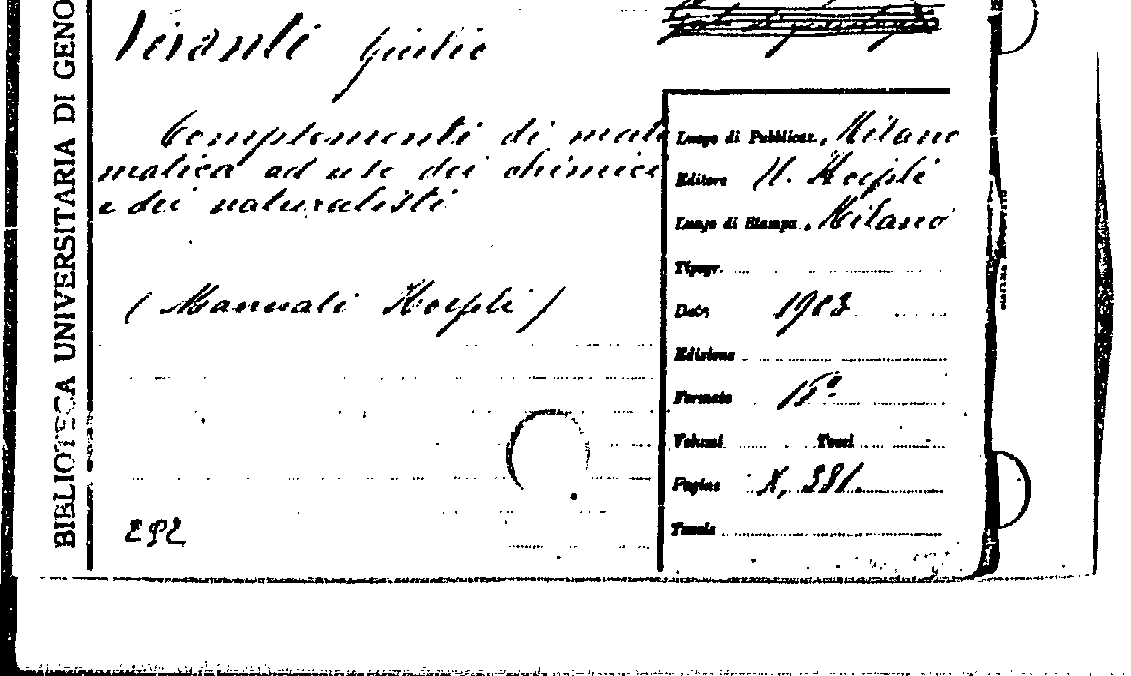 BIBLIOTECA UNIVERSITARIA DI GENO
Vivanti Giulio
Complementi di mate
matica ad uso dei chimici
e dei naturalisti
(Manuali Hoepli)
Luogo di Pubblicaz. Milano
Editore U. Hoepli
Luogo di Stampa Milano
Tipogr.
Data 1903
Edizione
Formato 16º
Volumi Tomi
Pagine X, 381.
Tavole